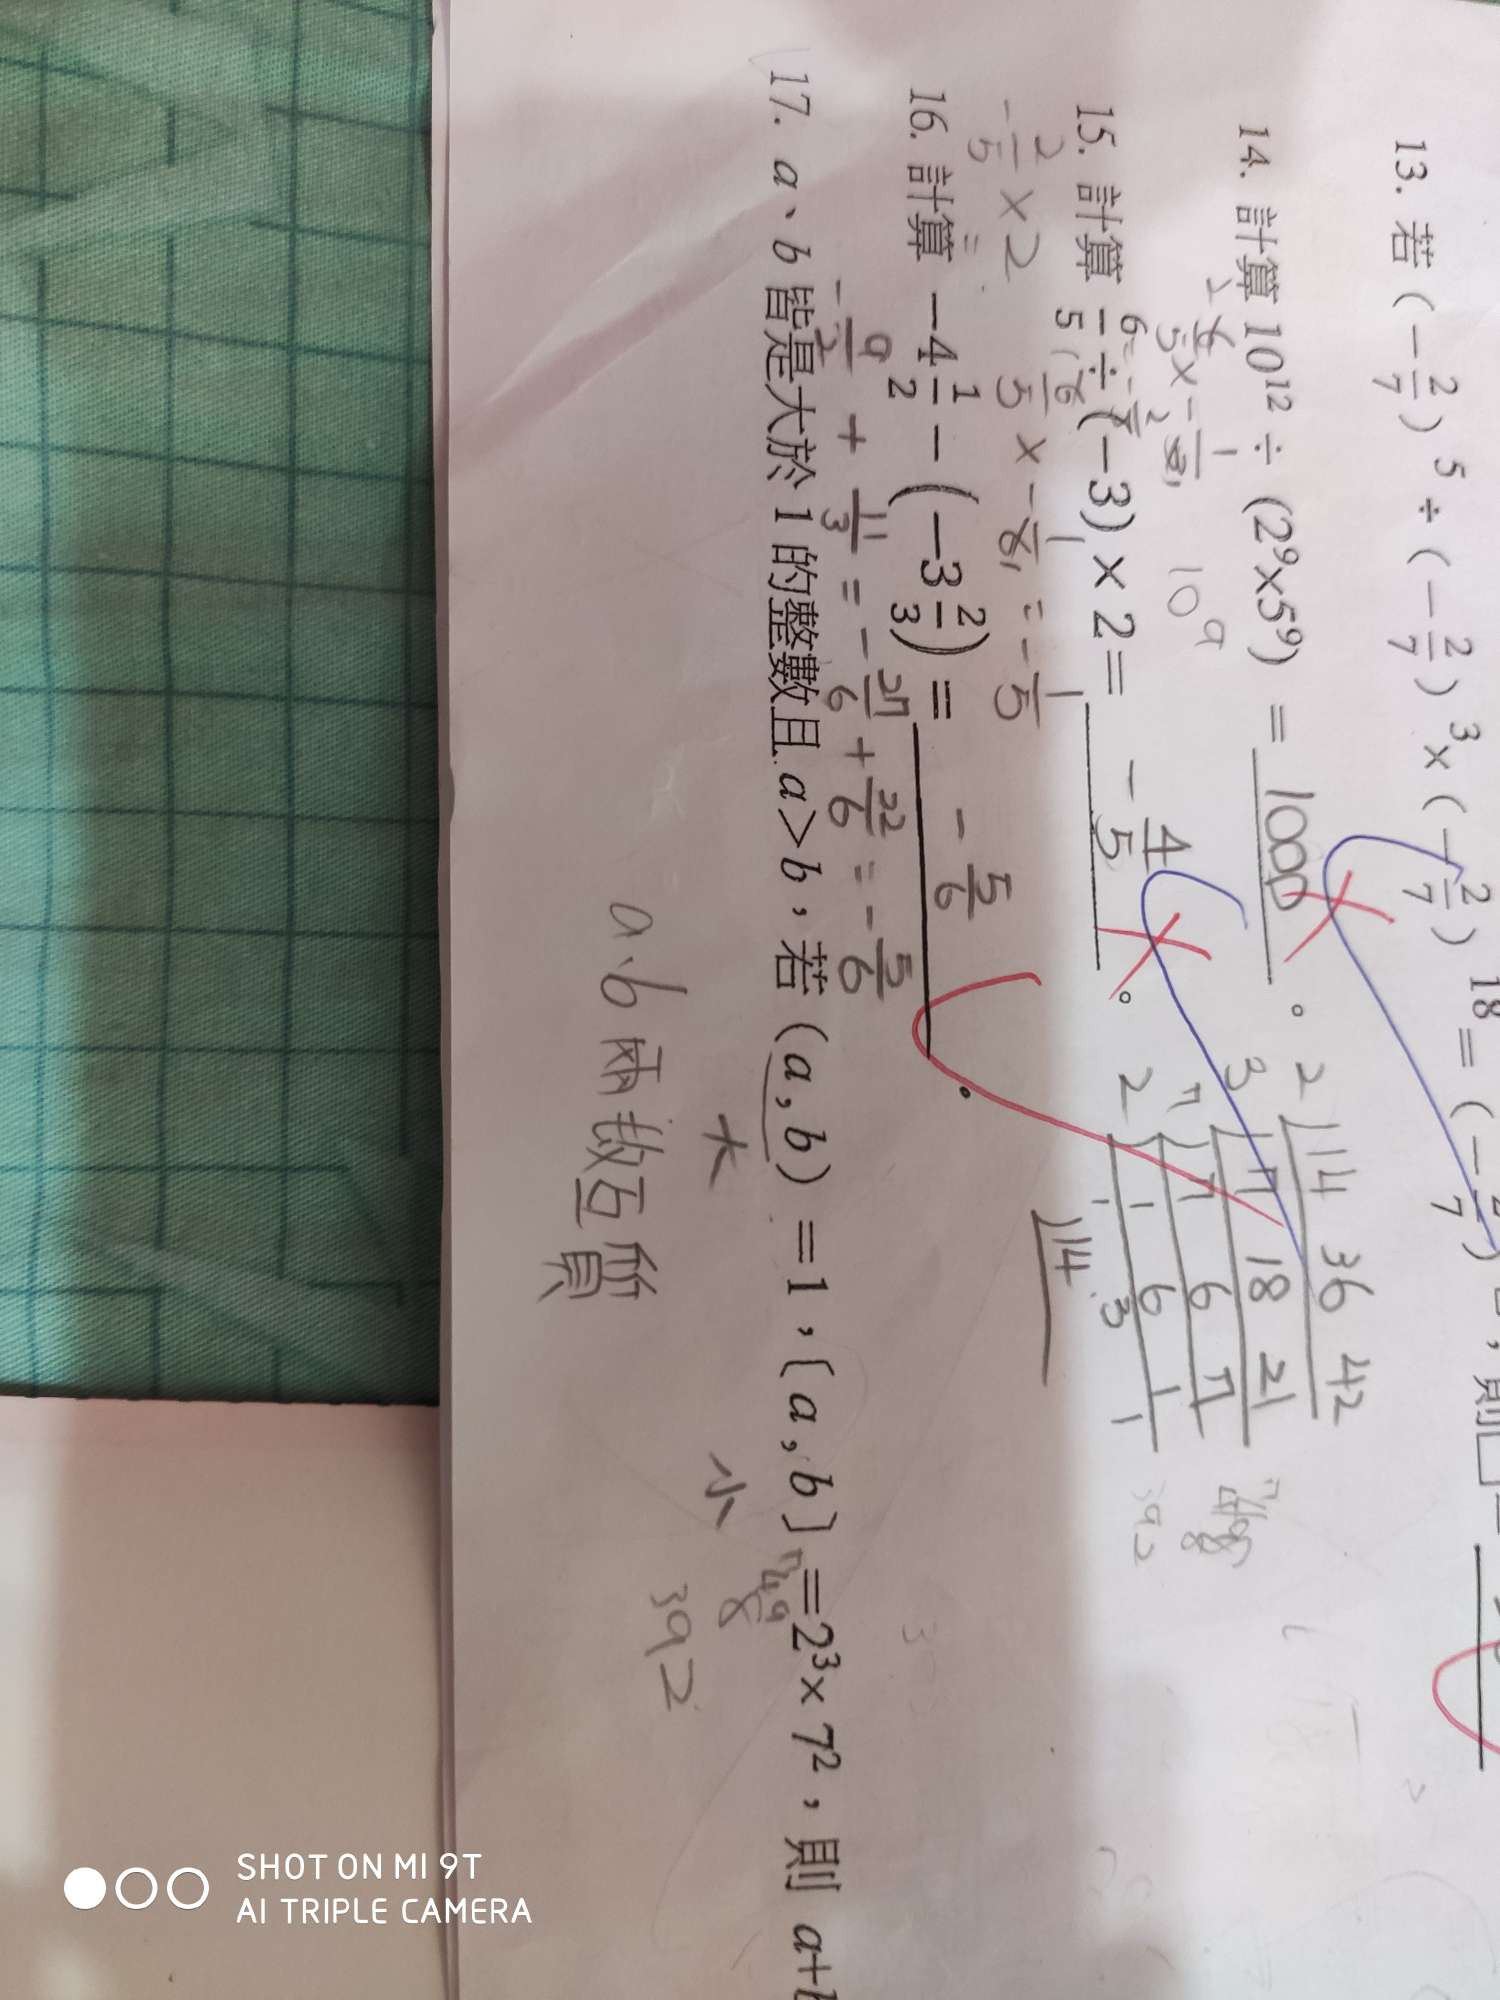 13. 若(-2/7)⁵÷(-2/7)³×(-2/7)¹⁸=(-2/7
14. 計算10¹²÷(2⁹×5⁹)=1000。
10⁹
15. 計算6/5÷(-3)×2=-4/5。
-2/5×2=
16. 計算-4 1/2-(-3 2/3)=-5/6.
-9/2+11/3=-27/6+22/6=-5/6
2 14 36 42
3 7 18 21
7 7 6 7
2 1 6 1
1 3 1
14
17. a、b皆是大於1的整數且a>b,若(a,b)=1,〔a,b〕=2³×7²,則a+b
大
小
49
8
392
a、b兩數互質
SHOT ON MI 9T
AI TRIPLE CAMERA